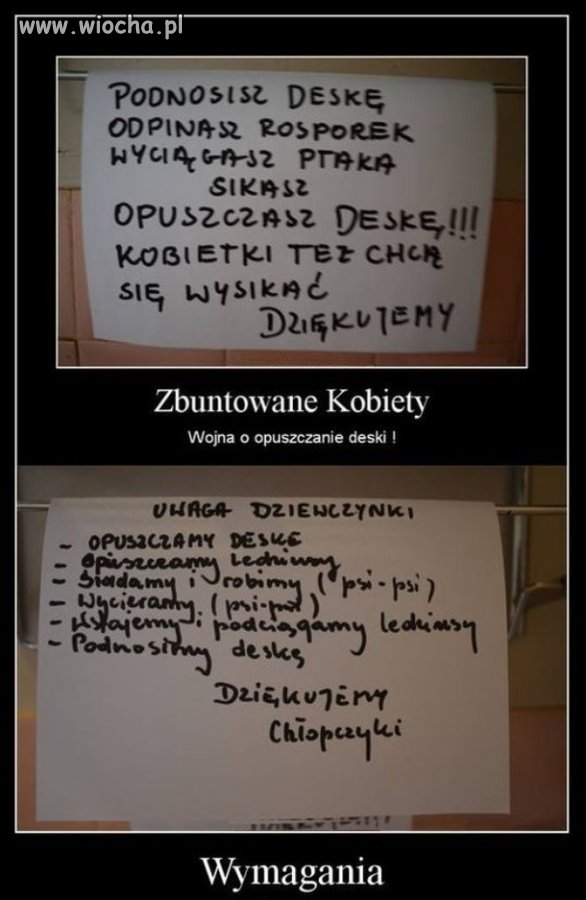 www.wiocha.pl
PODNOSISZ DESKĘ
ODPINASZ ROSPOREK
WYCIĄGASZ PTAKA
SIKASZ
OPUSZCZASZ DESKĘ!!!
KOBIETKI TEŻ CHCĄ
SIĘ WYSIKAĆ
DZIĘKUJEMY
Zbuntowane Kobiety
Wojna o opuszczanie deski !
UWAGA DZIEWCZYNKI
- OPUSZCZAMY DESKĘ
- Opuszczamy
- Siadamy i robimy (psi-psi)
- Wycieramy. (psi-psi)
- Wstajemy i podciągamy
- Podnosimy deskę
DZIĘKUJEMY
Chłopczyki
Wymagania